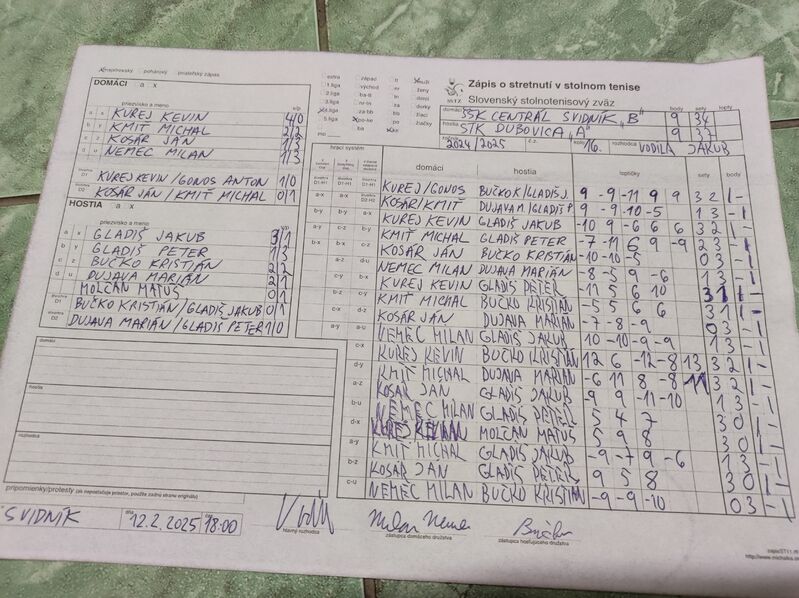 majstrovský pohárový priateľský zápas
DOMÁCI a x
priezvisko a meno v/p
a x KUREJ KEVIN 4/0
b y KMIŤ MICHAL 2/2
c KOSÁR JÁN 1/3
d u NEMEC MILAN 1/3
štvorhra D1 KUREJ KEVIN/GONOS ANTON 1/0
D2 KOSÁR JÁN/KMIŤ MICHAL 0/1
HOSTIA a x
priezvisko a meno
a x GLADIŠ JAKUB 3/1
b y GLADIŠ PETER 1/3
c z BUČKO KRISTIÁN 2/2
d u DUJAVA MARIÁN 2/1
MOLČAN MATÚŠ 0/1
D1 BUČKO KRISTIÁN/GLADIŠ JAKUB 0/1
D2 DUJAVA MARIÁN/GLADIŠ PETER 1/0
domáci
hostia
rozhodca
pripomienky/protesty (ak nepostačuje priestor, použite zadnú stranu originálu)
extra západ muži
1.liga východ ženy
2.liga ba-tt
3.liga
4.liga za-bb žiaci
5.liga po-ke žiačky
ba
SSTZ
Zápis o stretnutí v stolnom tenise
Slovenský stolnotenisový zväz
domáci SSK CENTRÁL SVIDNÍK „B“ body 9 sety 34 lopty
hostia STK DUBOVICA „A“ 9 37
2024/2025 č.z. kolo 16. rozhodca VODILA JAKUB
hrací systém domáci hostia loptičky sety body
KUREJ/GONOS BUČKO K/GLADIŠ J. 9 -9 -11 9 9 3 2 1 -
KOSÁR/KMIŤ DUJAVA M./GLADIŠ P. 9 -9 -10 -5 1 3 - 1
KUREJ KEVIN GLADIŠ JAKUB -10 9 -6 6 6 3 2 1 -
KMIŤ MICHAL GLADIŠ PETER -7 -11 6 9 -9 2 3 - 1
KOSÁR JÁN BUČKO KRISTIÁN -10 -10 -5 0 3 - 1
NEMEC MILAN DUJAVA MARIÁN -8 -5 9 -6 1 3 - 1
KUREJ KEVIN GLADIŠ PETER -11 5 6 10 3 1 1 -
KMIŤ MICHAL BUČKO KRISTIÁN -5 5 6 6 3 1 1 -
KOSÁR JÁN DUJAVA MARIÁN -7 -8 -9 0 3 - 1
NEMEC MILAN GLADIŠ JAKUB 10 -10 -9 -9 1 3 - 1
KUREJ KEVIN BUČKO KRISTIÁN 12 6 -12 -8 13 3 2 1 -
KMIŤ MICHAL DUJAVA MARIÁN -6 11 8 -8 11 3 2 1 -
KOSÁR JÁN GLADIŠ JAKUB -9 9 -11 -10 1 3 - 1
NEMEC MILAN GLADIŠ PETER 5 4 7 3 0 1 -
KUREJ KEVIN MOLČAN MATÚŠ 5 9 8 3 0 1 -
KMIŤ MICHAL GLADIŠ JAKUB -9 -7 9 -6 1 3 - 1
KOSÁR JÁN GLADIŠ PETER 9 5 8 3 0 1 -
NEMEC MILAN BUČKO KRISTIÁN -9 -9 -10 0 3 - 1
SVIDNÍK dňa 12.2.2025 čas 18:00
hlavný rozhodca
Milan Nemec
zástupca domáceho družstva
Bučko
zástupca hosťujúceho družstva